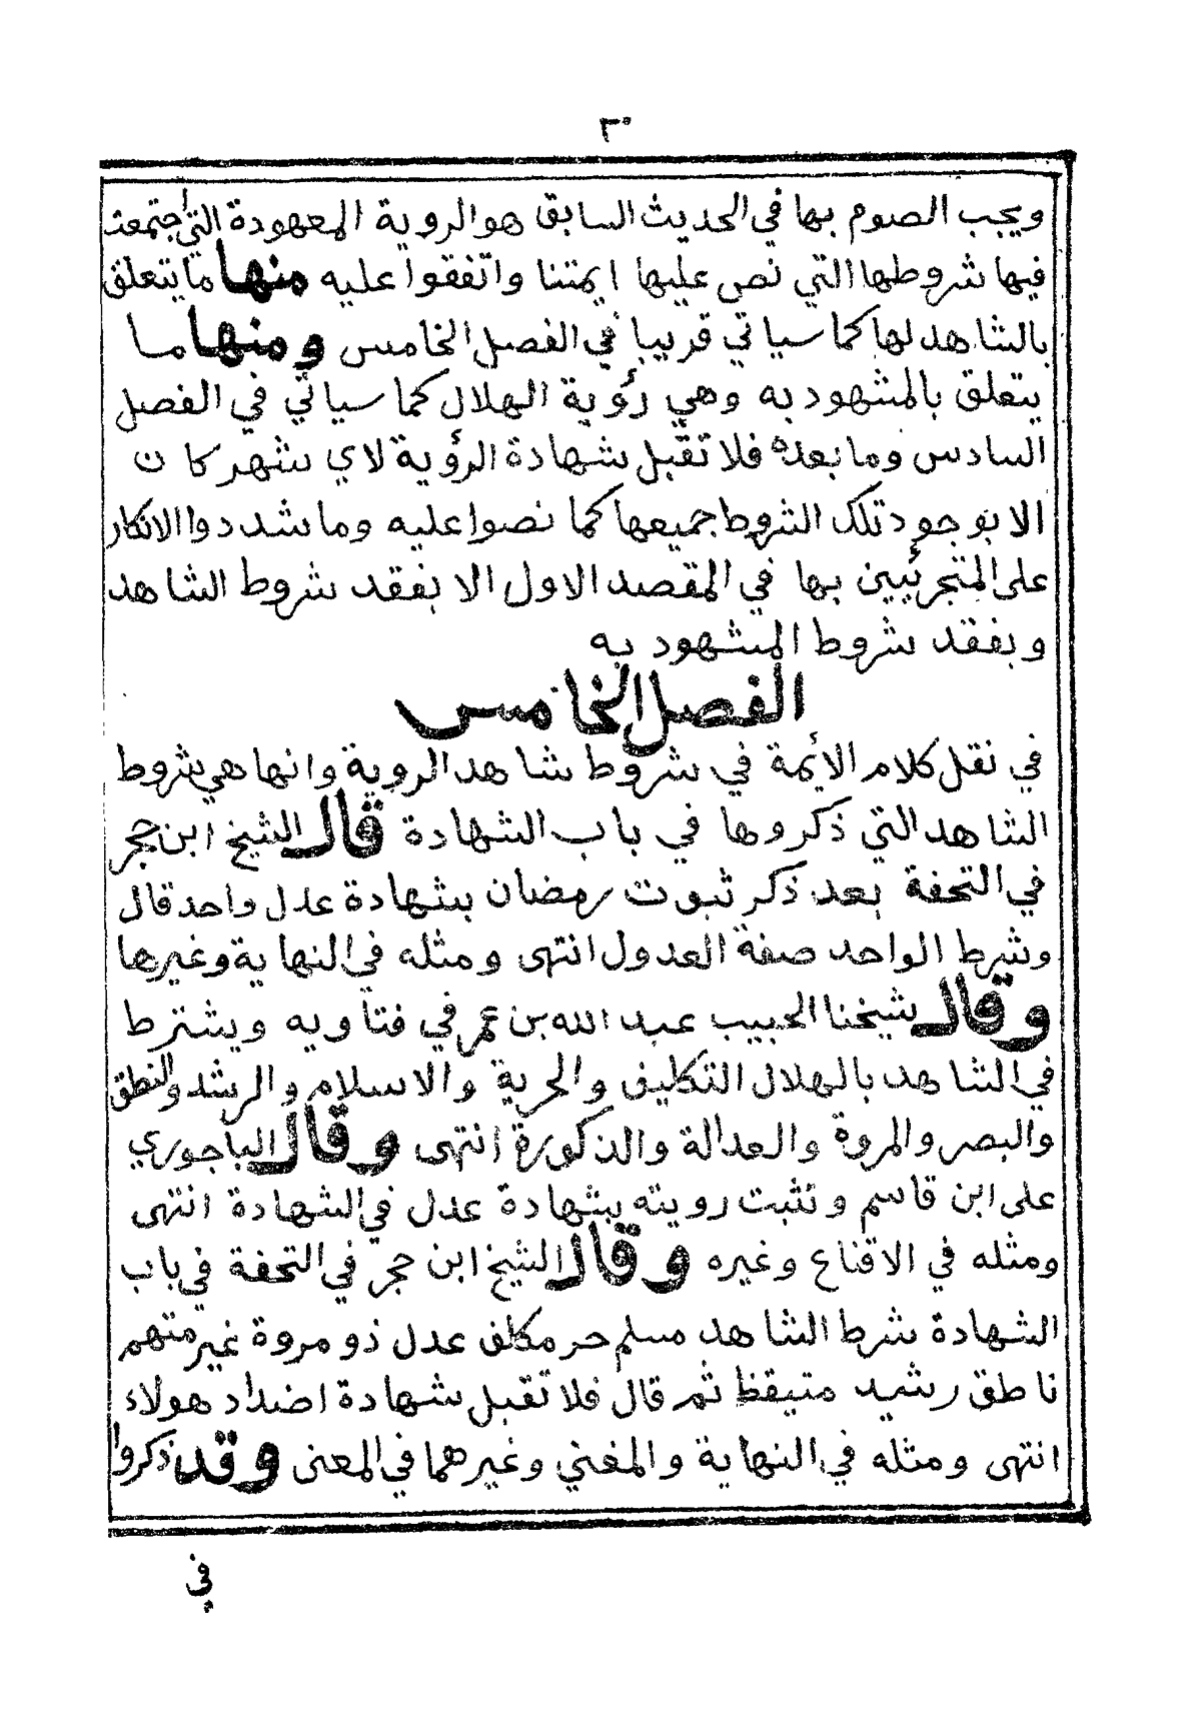 ٣٠
ويجب الصوم بها في الحديث السابق هو الروية المعهودة التي اجتمعت
فيها شروطها التي نص عليها ايمتنا واتفقوا عليه منها ما يتعلق
بالشاهد لها كما سياتي قريبا في الفصل الخامس ومنها ما
يتعلق بالمشهود به وهي رؤية الهلال كما سيأتي في الفصل
السادس وما بعده فلا تقبل شهادة الرؤية لاي شهر كان
الا بوجود تلك الشروط جميعها كما نصوا عليه وما شددوا الانكار
على المتجرئيين بها في المقصد الاول الا بفقد شروط الشاهد
وبفقد شروط المشهود به
الفصل الخامس
في نقل كلام الأيمة في شروط شاهد الروية وانها هي شروط
الشاهد التي ذكروها في باب الشهادة قال الشيخ ابن حجر
في التحفة بعد ذكر ثبوت رمضان بشهادة عدل واحد قال
وشرط الواحد صفة العدول انتهى ومثله في النهاية وغيرها
وقال شيخنا الحبيب عبد الله بن عمر في فتاويه ويشترط
في الشاهد بالهلال التكليف والحرية والاسلام والرشد والنطق
والبصر والمروة والعدالة والذكورة انتهى وقال الباجوري
على ابن قاسم وتثبت رويته بشهادة عدل في الشهادة انتهى
ومثله في الاقناع وغيره وقال الشيخ ابن حجر في التحفة في باب
الشهادة شرط الشاهد مسلم حر مكلف عدل ذو مروة غير متهم
ناطق رشيد متيقظ ثم قال فلا تقبل شهادة اضداد هولاء
انتهى ومثله في النهاية والمغني وغيرهما في المعنى وقد ذكروا
في